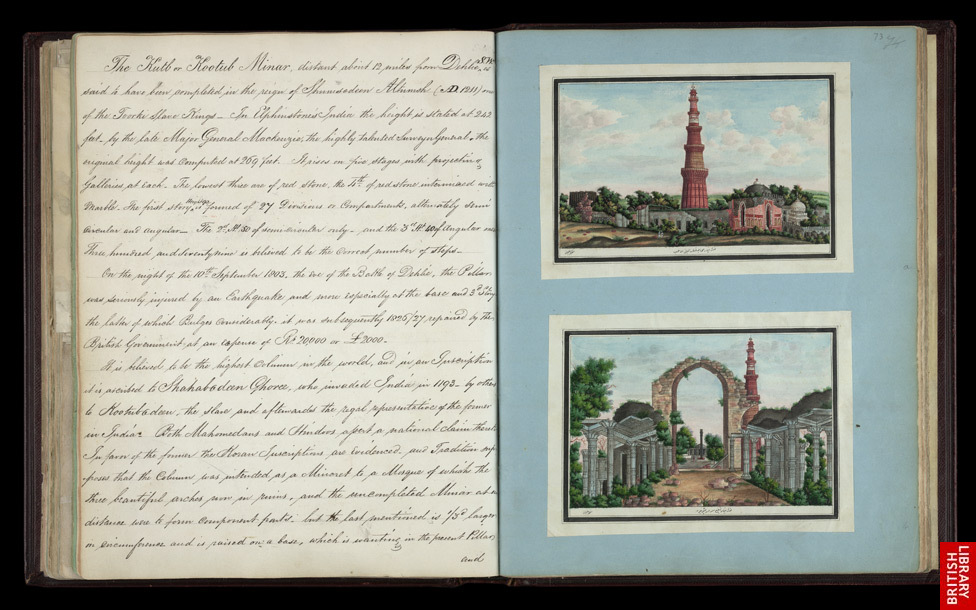 The Kutb or Kootub Minar, distant about 12 miles from Dehlie, is
said to have been completed in the reign of Shumsodeen Altumsh (AD. 1211) one
of the Toorke Slave Kings _ In Elphinstones India the height is stated at 242
feet, by the late Major General Mackenzie, the highly talented Surveyor General, the
original height was computed at 269 feet. It rises in five stages, with projecting
Galleries, at each. The lowest three are of red stone, the 4th. of red stone intermixed with
Marble. The first story is formed of 27 Divisions or Compartments, alternately semi
circular and angular _ The 2d. of semicircular only _ and the 3d. of angular
Three hundred and seventy nine is believed to be the correct number of steps _
On the night of the 10th September 1803, the eve of the Battle of Dehlie, the Pillar
was seriously injured by an Earthquake, and more especially at the base and 3d Story
the latter of which Bulges considerably. it was subsequently 1826/27 repaired by the
British Government, at an expense of Rs 20,000 or £2000 _
It is believed to be the highest Column in the world, and in an Inscription
it is ascribed to Shahabodeen Ghoree, who invaded India in 1193 _ by others
to Kootubodeen, the slave and afterwards the regal representative of the former
in India. Both Mahomedans and Hindoos assert a national claim thereto
In favor of the former the Koran Inscriptions are evidenced, and Tradition sup
poses that the Column was intended as a Minaret to a Mosque of which the
three beautiful arches now in ruins, and the uncompleted Minar at a
distance were to form component parts. but the last mentioned is 1/3d larger
in circumference and is raised on a base, which is wanting in the present Pillar,
and
73
BRITISH
LIBRARY